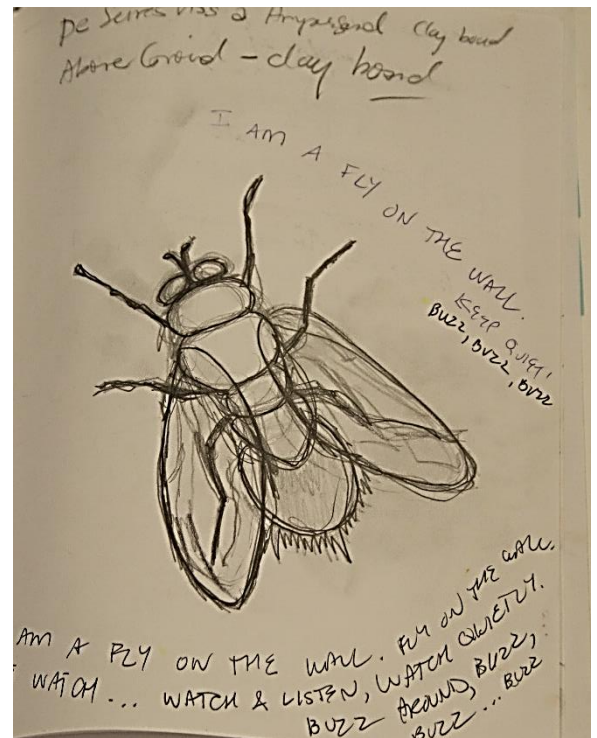 Clay board
Above - clay board
I AM A FLY ON THE WALL.
KEEP QUIET!
BUZZ, BUZZ, BUZZ
AM A FLY ON THE WALL. FLY ON THE WALL.
WATCH... WATCH & LISTEN, WATCH QUIETLY.
BUZZ AROUND, BUZZ,
BUZZ... BUZZ